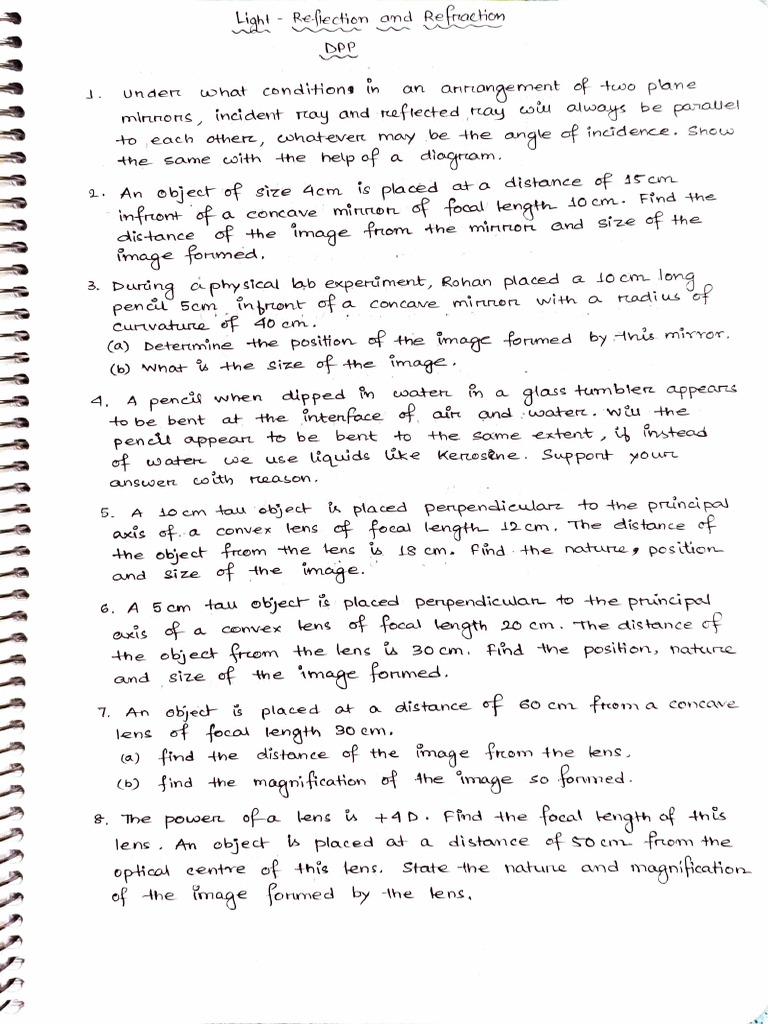 Light - Reflection and Refraction
DPP
1. Under what conditions in an arrangement of two plane
mirrors, incident ray and reflected ray will always be parallel
to each other, whatever may be the angle of incidence. Show
the same with the help of a diagram.
2. An object of size 4cm is placed at a distance of 15cm
infront of a concave mirror of focal length 10cm. Find the
distance of the image from the mirror and size of the
image formed.
3. During a physical lab experiment, Rohan placed a 10cm long
pencil 5cm infront of a concave mirror with a radius of
curvature of 40 cm.
(a) Determine the position of the image formed by this mirror.
(b) What is the size of the image.
4. A pencil when dipped in water in a glass tumbler appears
to be bent at the interface of air and water. Will the
pencil appear to be bent to the same extent, if instead
of water we use liquids like Kerosine. Support your
answer with reason.
5. A 10cm tall object is placed perpendicular to the principal
axis of a convex lens of focal length 12cm. The distance of
the object from the lens is 18 cm. Find the nature, position
and size of the image.
6. A 5cm tall object is placed perpendicular to the principal
axis of a convex lens of focal length 20 cm. The distance of
the object from the lens is 30cm. Find the position, nature
and size of the image formed.
7. An object is placed at a distance of 60 cm from a concave
lens of focal length 30cm.
(a) find the distance of the image from the lens.
(b) find the magnification of the image so formed.
8. The power of a lens is +4D. Find the focal length of this
lens. An object is placed at a distance of 50cm from the
optical centre of this lens. State the nature and magnification
of the image formed by the lens.